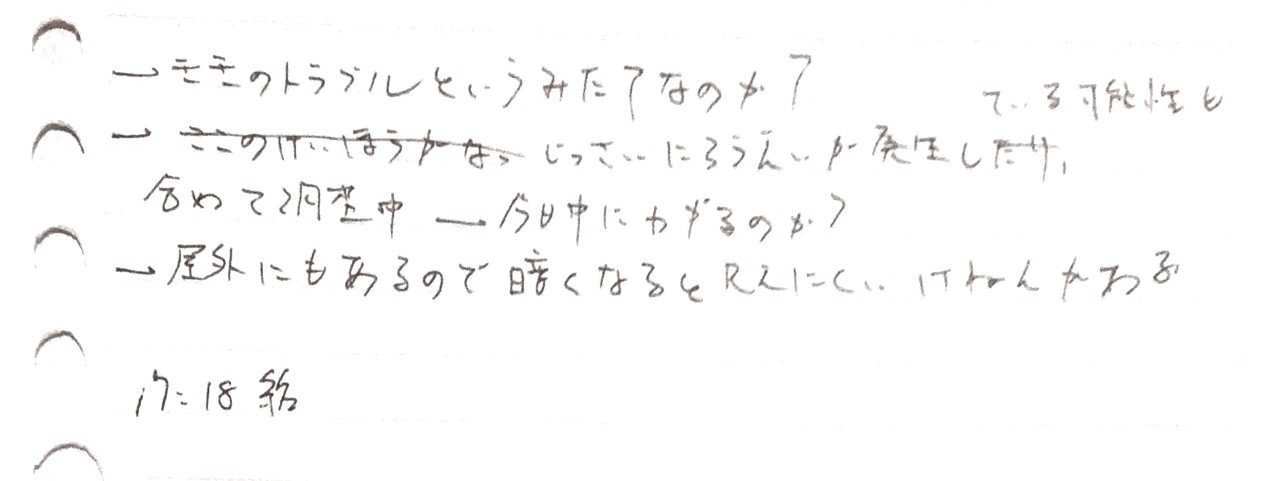 → モモのトラブルというみたてなのか?
ている可能性も
→ ここのけいほうがなっ じっさいにろうえいが発生したり、
含めて調査中 → 今日中にわかるのか?
→ 屋外にもあるので暗くなると見えにくい けねんがある
17:18 給